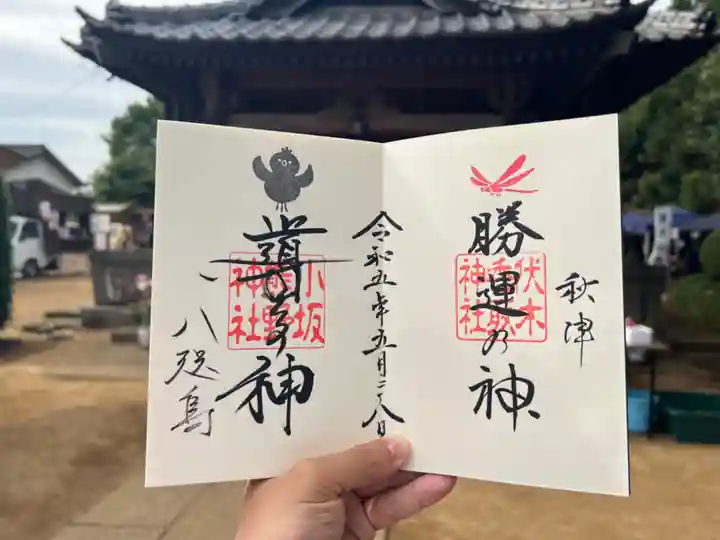 秋津
勝運乃神
伏木
香取
神社
令和五年五月二十八日
導き神
小坂
熊野
神社
八咫烏